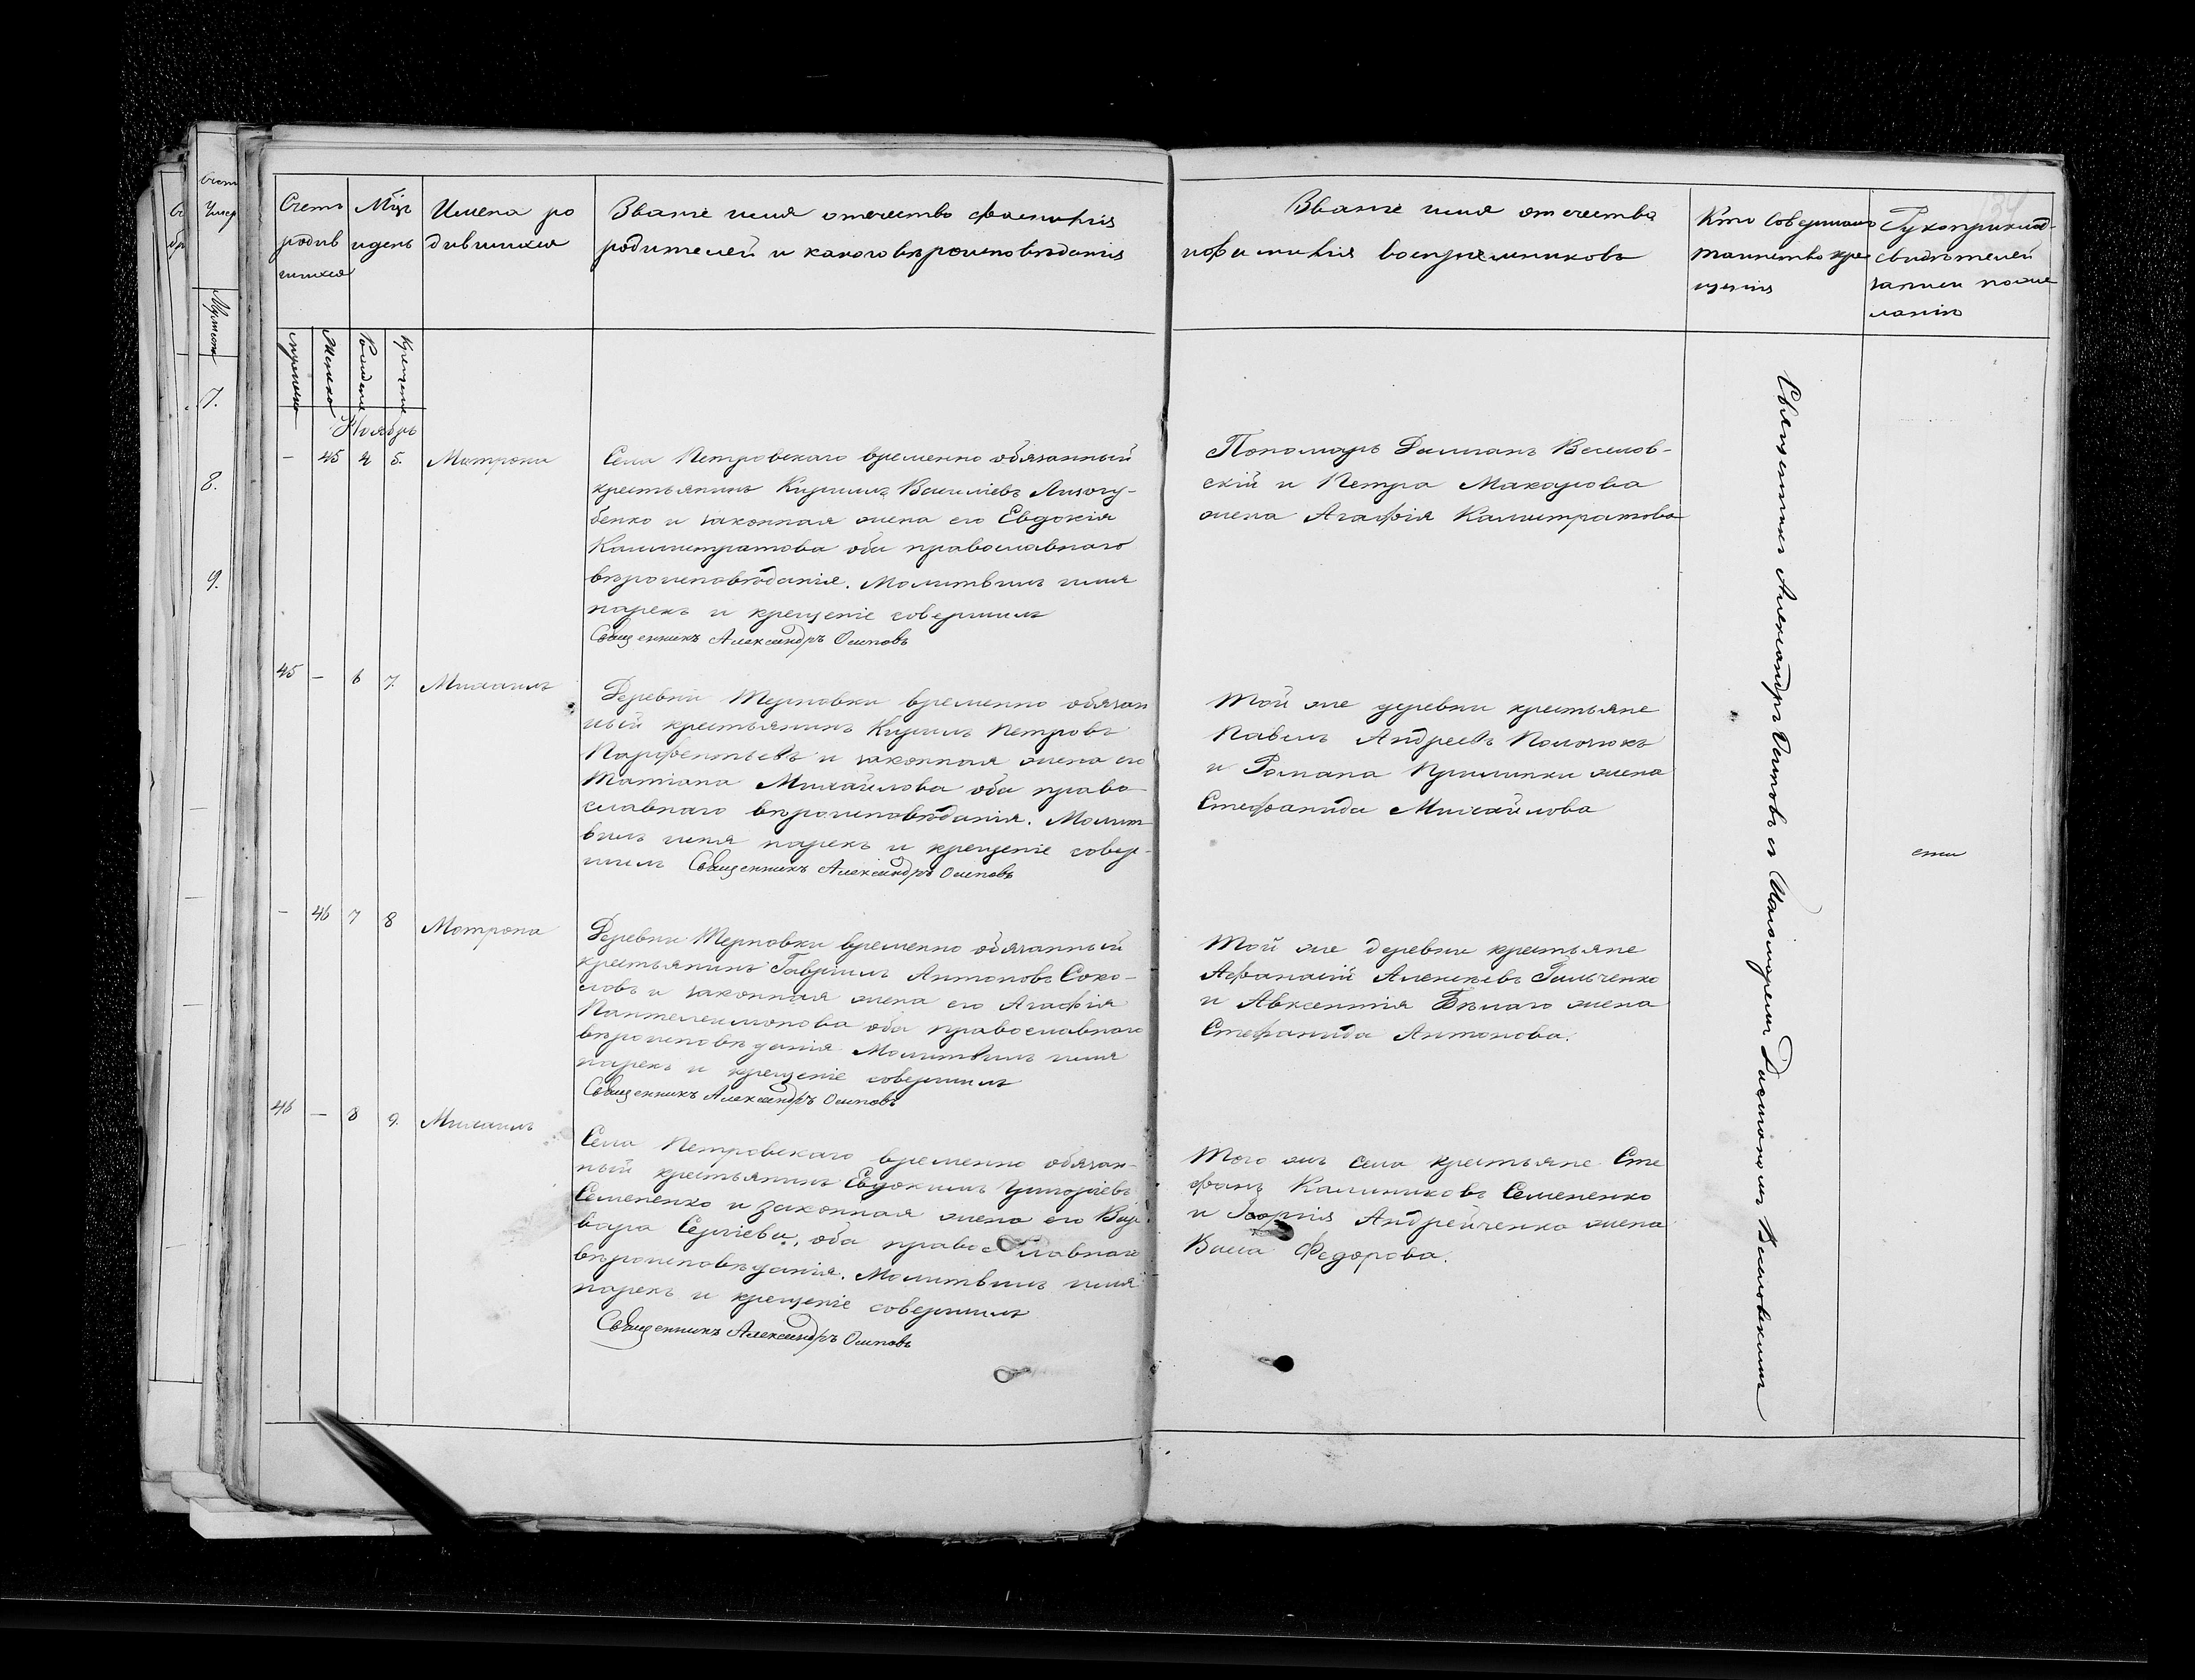 Счетъ родив шихся
Мѣц и день
Имена ро дившихся
Званіе имя отечество фамилія
родителей и какого вѣроисповѣданія
Званіе имя отечество
и фамилія воспріемниковъ
Кто совершалъ
таинство кре
щенія
Рукоприклад.
свидѣтелей
записи по же
ланію
Мужеска
Женска
Рожденія
Крещенія
Ноябрь
— 45 4 5. Матрона
Села Петровскаго временно обязанный
крестьянинъ Кириллъ Василіевъ Лизогу-
бенко и законная жена его Евдокія
Каллистратова оба православнаго
вѣроисповѣданія. Молитвилъ имя
нарекъ и крещеніе совершилъ
Священникъ Александръ Осиповъ
Пономарь Даміанъ Веселов-
скій и Петра Макарова
жена Агафія Калистратова
45 — 6 7. Михаилъ
Деревни Терновки временно обязан
ный крестьянинъ Кирилъ Петровъ
Парфентьевъ и законная жена его
Татіана Михайлова оба право
славнаго вѣроисповѣданія. Молит
вилъ имя нарекъ и крещеніе совер-
шилъ Священникъ Александръ Осиповъ
Той же деревни крестьяне
Павелъ Андреевъ
и Романа жена
Стефанида Михайлова
— 46 7 8 Матрона
Деревни Терновки временно обязанный
крестьянинъ Гавріилъ Антоновъ Соко-
ловъ и законная жена его Агафія
Пантелеимонова оба православнаго
вѣроисповѣданія Молитвилъ имя
нарекъ и крещеніе совершилъ
Священникъ Александръ Осиповъ
Той же деревни крестьяне
Афанасій Алексѣевъ Гальченко
и Авксентія Бѣлаго жена
Стефанида Антонова.
46 — 8 9. Михаилъ
Села Петровскаго временно обязан-
ный крестьянинъ Евдокимъ Григоріевъ
Семененко и законная жена его Вар
вара Сергіева, оба православнаго
вѣроисповѣданія. Молитвилъ имя
нарекъ и крещеніе совершилъ
Священникъ Александръ Осиповъ
Того же села крестьяне Сте
фанъ Калиниковъ Семененко
и Георгія Андрейченка жена
Васса Федорова.
Священникъ Александръ Осиповъ съ Исаломщикомъ Даміаномъ Веселовскимъ
7.
8.
9.